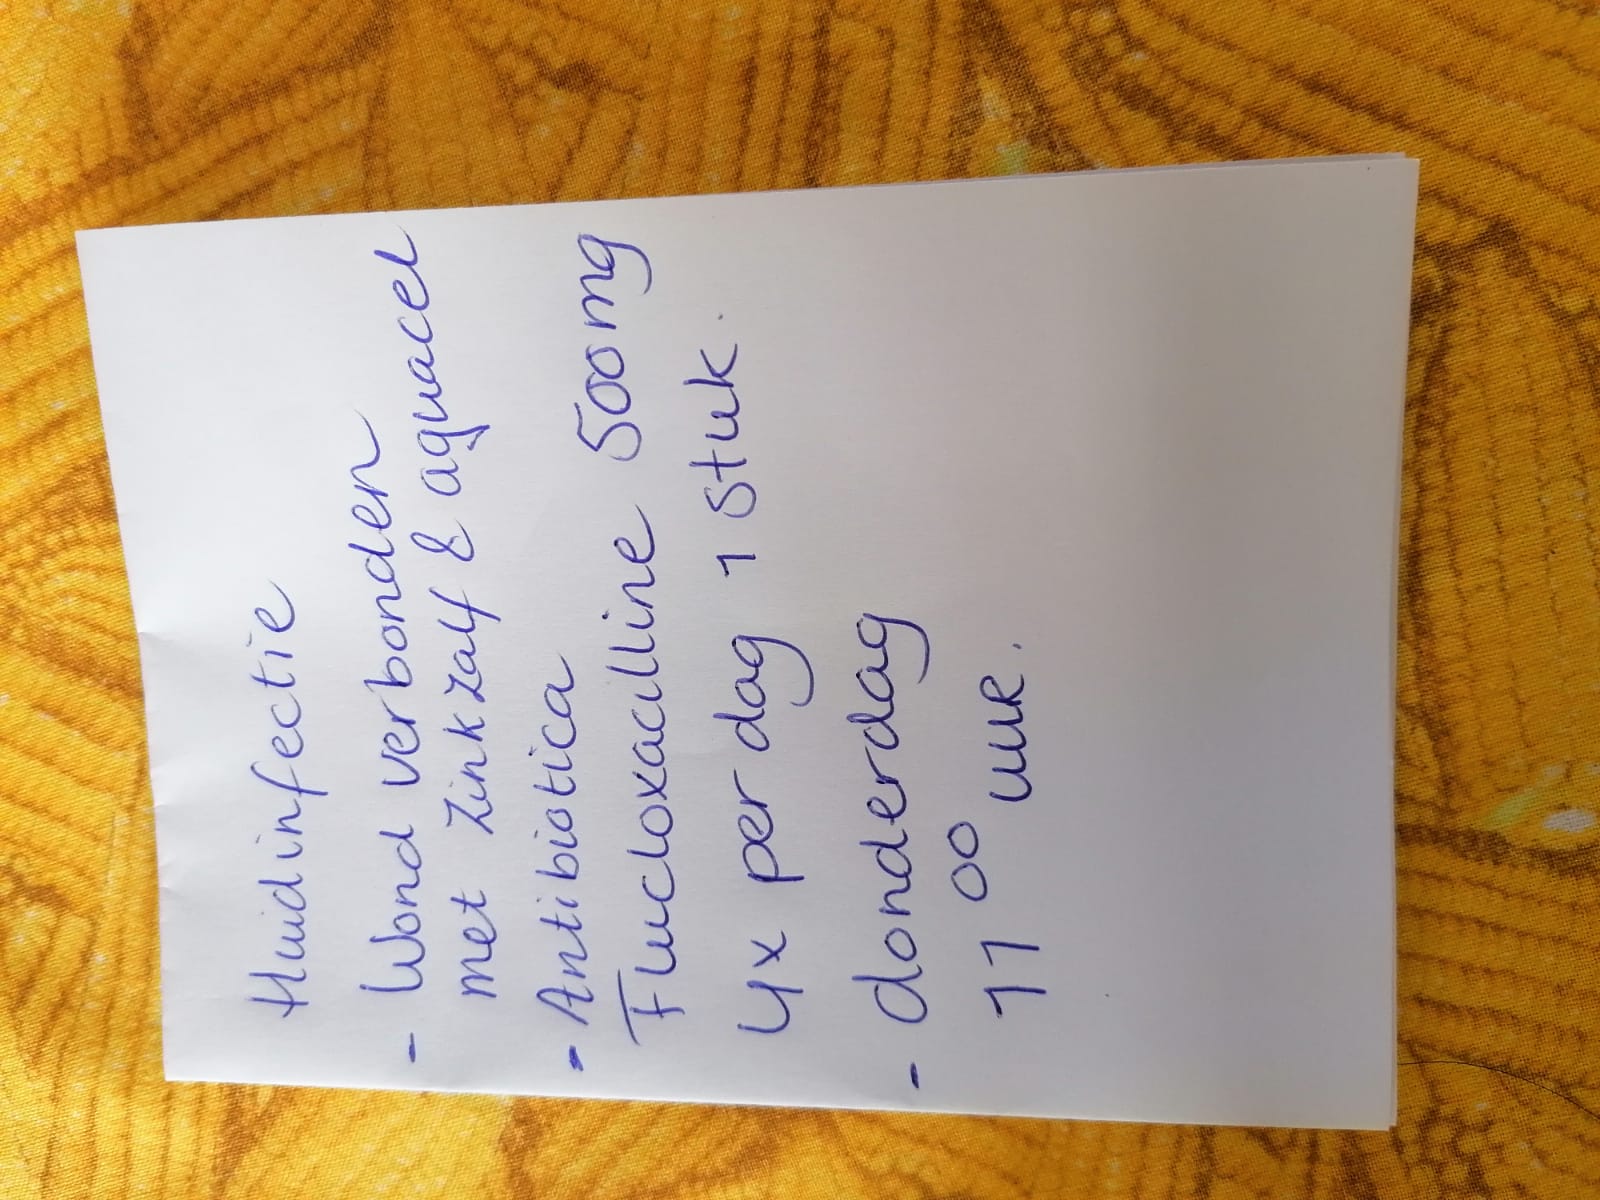 Huidinfectie
- Wond verbonden
met Zinkzalf & aquacel
- Antibiotica
Flucloxacilline 500mg
4x per dag 1 stuk.
- donderdag
11 00 uur.